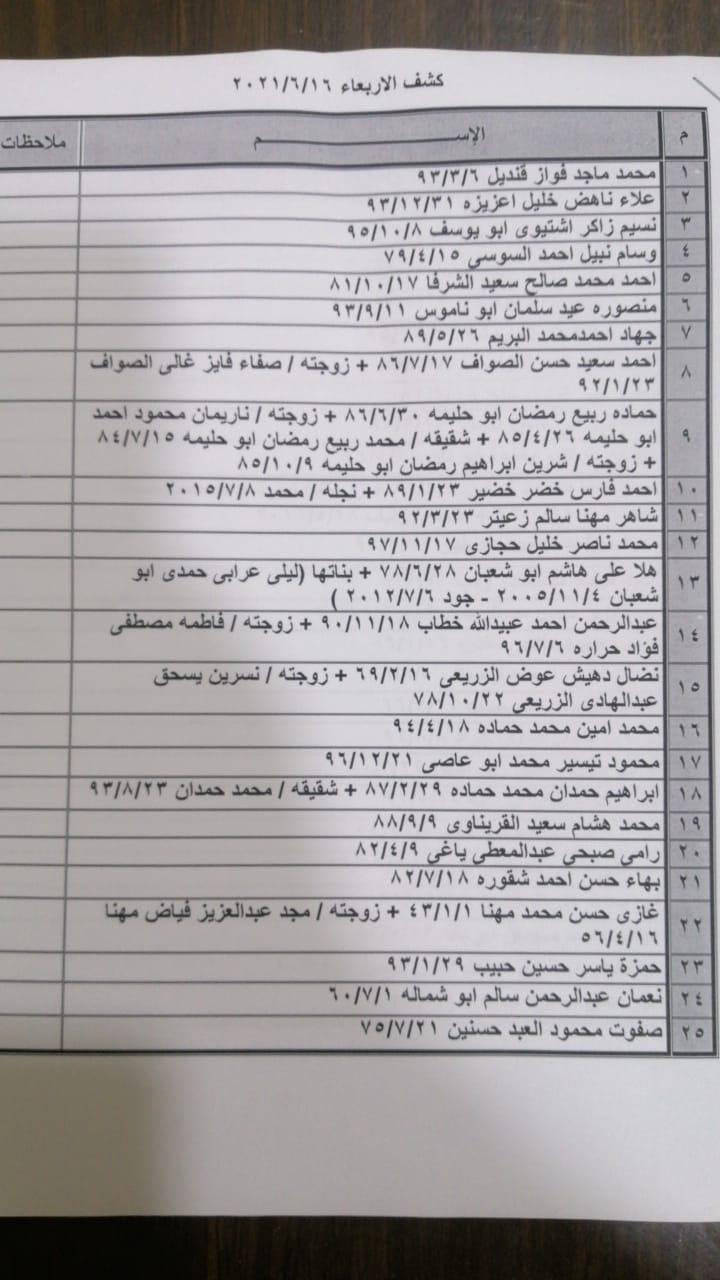 كشف الاربعاء ٢٠٢١/٦/١٦
م الإســـــــــم ملاحظات
١ محمد ماجد فواز قنديل ٩٣/٣/٦
٢ علاء ناهض خليل اعزيزه ٩٣/١٢/٣١
٣ نسيم زاكر اشتيوى ابو يوسف ٩٥/١٠/٨
٤ وسام نبيل احمد السوسى ٧٩/٤/١٥
٥ احمد محمد صالح سعيد الشرفا ٨١/١٠/١٧
٦ منصوره عيد سلمان ابو ناموس ٩٣/٩/١١
٧ جهاد احمدمحمد البريم ٨٩/٥/٢٦
٨ احمد سعيد حسن الصواف ٨٦/٧/١٧ + زوجته / صفاء فايز غالى الصواف
٩٢/١/٢٣
٩ حماده ربيع رمضان ابو حليمه ٨٦/٦/٣٠ + زوجته / ناريمان محمود احمد
ابو حليمه ٨٥/٤/٢٦ + شقيقه / محمد ربيع رمضان ابو حليمه ٨٤/٧/١٥
+ زوجته / شرين ابراهيم رمضان ابو حليمه ٨٥/١٠/٩
١٠ احمد فارس خضر خضير ٨٩/١/٢٣ + نجله / محمد ٢٠١٥/٧/٨
١١ شاهر مهنا سالم زعيتر ٩٢/٣/٢٣
١٢ محمد ناصر خليل حجازى ٩٧/١١/١٧
١٣ هلا على هاشم ابو شعبان ٧٨/٦/٢٨ + بناتها (ليلى عرابى حمدى ابو
شعبان ٢٠٠٥/١١/٤ - جود ٢٠١٢/٧/٦ )
١٤ عبدالرحمن احمد عبيدالله خطاب ٩٠/١١/١٨ + زوجته / فاطمه مصطفى
فؤاد حراره ٩٦/٧/٦
١٥ نضال دهيش عوض الزريعى ٦٩/٢/١٦ + زوجته / نسرين يسحق
عبدالهادى الزريعى ٧٨/١٠/٢٢
١٦ محمد امين محمد حماده ٩٤/٤/١٨
١٧ محمود تيسير محمد ابو عاصى ٩٦/١٢/٢١
١٨ ابراهيم حمدان محمد حماده ٨٧/٢/٢٩ + شقيقه / محمد حمدان ٩٣/٨/٢٣
١٩ محمد هشام سعيد القريناوى ٨٨/٩/٩
٢٠ رامى صبحى عبدالمعطى ياغى ٨٢/٤/٩
٢١ بهاء حسن احمد شقوره ٨٢/٧/١٨
٢٢ غازى حسن محمد مهنا ٤٣/١/١ + زوجته / مجد عبدالعزيز فياض مهنا
٥٦/٤/١٦
٢٣ حمزة ياسر حسين حبيب ٩٣/١/٢٩
٢٤ نعمان عبدالرحمن سالم ابو شماله ٦٠/٧/١
٢٥ صفوت محمود العبد حسنين ٧٥/٧/٢١